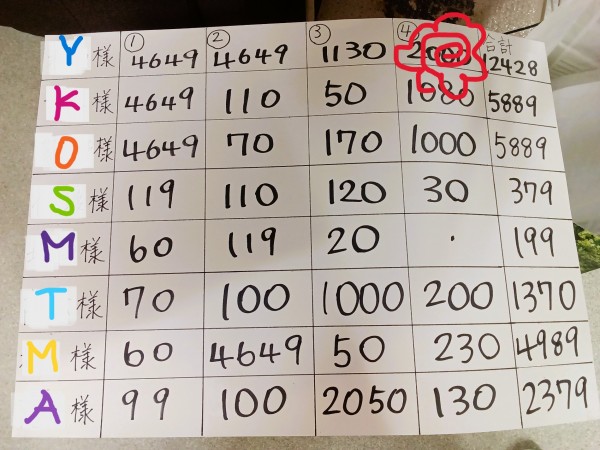 ① ② ③ ④ 合計
Y様 4649 4649 1130 2000 12428
K様 4649 110 50 1080 5889
O様 4649 70 170 1000 5889
S様 119 110 120 30 379
M様 60 119 20 · 199
T様 70 100 1000 200 1370
M様 60 4649 50 230 4989
A様 99 100 2050 130 2379